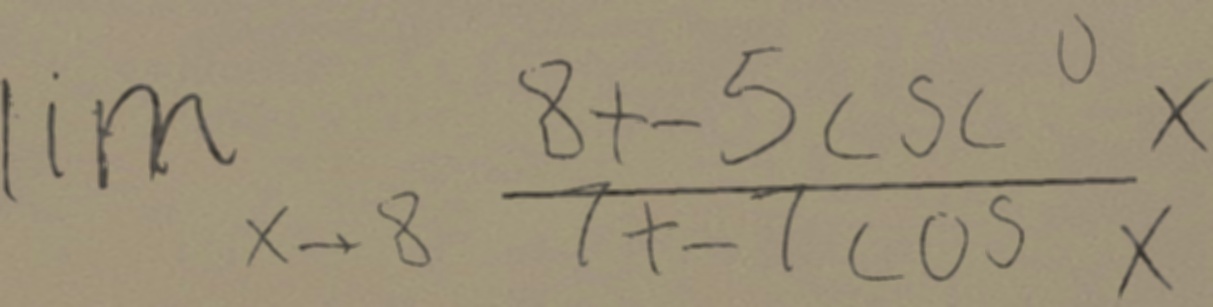 lim x→8 (8+-5csc^0 x)/(7+-7cos x)